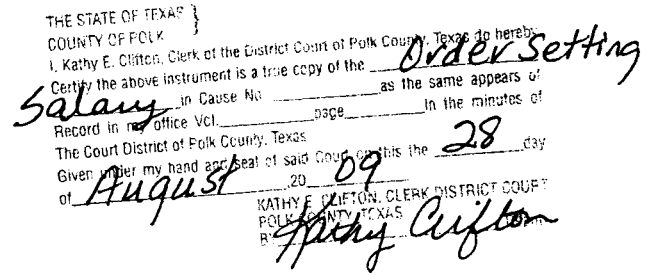 THE STATE OF TEXAS }
COUNTY OF POLK }
I, Kathy E. Clifton, Clerk of the District Court of Polk County, Texas do hereby
Certify the above instrument is a true copy of the Order Setting
Salary in Cause No ________ as the same appears of
Record in my office Vol. ________ page ________ in the minutes of
The Court District of Polk County, Texas
Given under my hand and seal of said Court on this the 28 day
of August , 20 09
KATHY E. CLIFTON, CLERK DISTRICT COURT
POLK COUNTY, TEXAS
BY Kathy Clifton